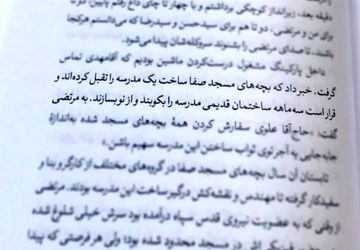 دقیقه بعد، زیرانداز کوچکی برداشتم و با چهار تا چای داغ رفتم پایین؛ دوتا
برای من و مرتضی، دو تا هم برای سیدحسن و سیدرضا که می‌دانستم هرکجا
باشند، با صدای مرتضی را بشنوند سروکله‌شان پیدا می‌شود.
داخل پارکینگ، مشغول درست‌کردن ماشین بودیم که آقامهدی تماس
گرفت. خبر داد که بچه‌های مسجد صفا ساخت یک مدرسه را تقبل کرده‌اند و
قرار است سه‌ماهه ساختمان قدیمی مدرسه را بکوبند و از نو بسازند. به مرتضی
گفت: «حاج‌آقا علوی سفارش کردن همهٔ بچه‌های مسجد شده به‌اندازهٔ
جابه‌جایی یه آجر توی ثواب ساختن این مدرسه سهیم باشن.»
تابستان آن سال بچه‌های مسجد صفا در گروه‌های مختلف از کارگر و بنا و
سفیدکار گرفته تا مهندس و نقشه‌کش درگیر ساخت این مدرسه بودند. مرتضی
از وقتی که به عضویت نیروی قدس سپاه درآمده بود سرش خیلی شلوغ شده
در مسجد محدود شده بود؛ ولی هر فرصتی که پیدا